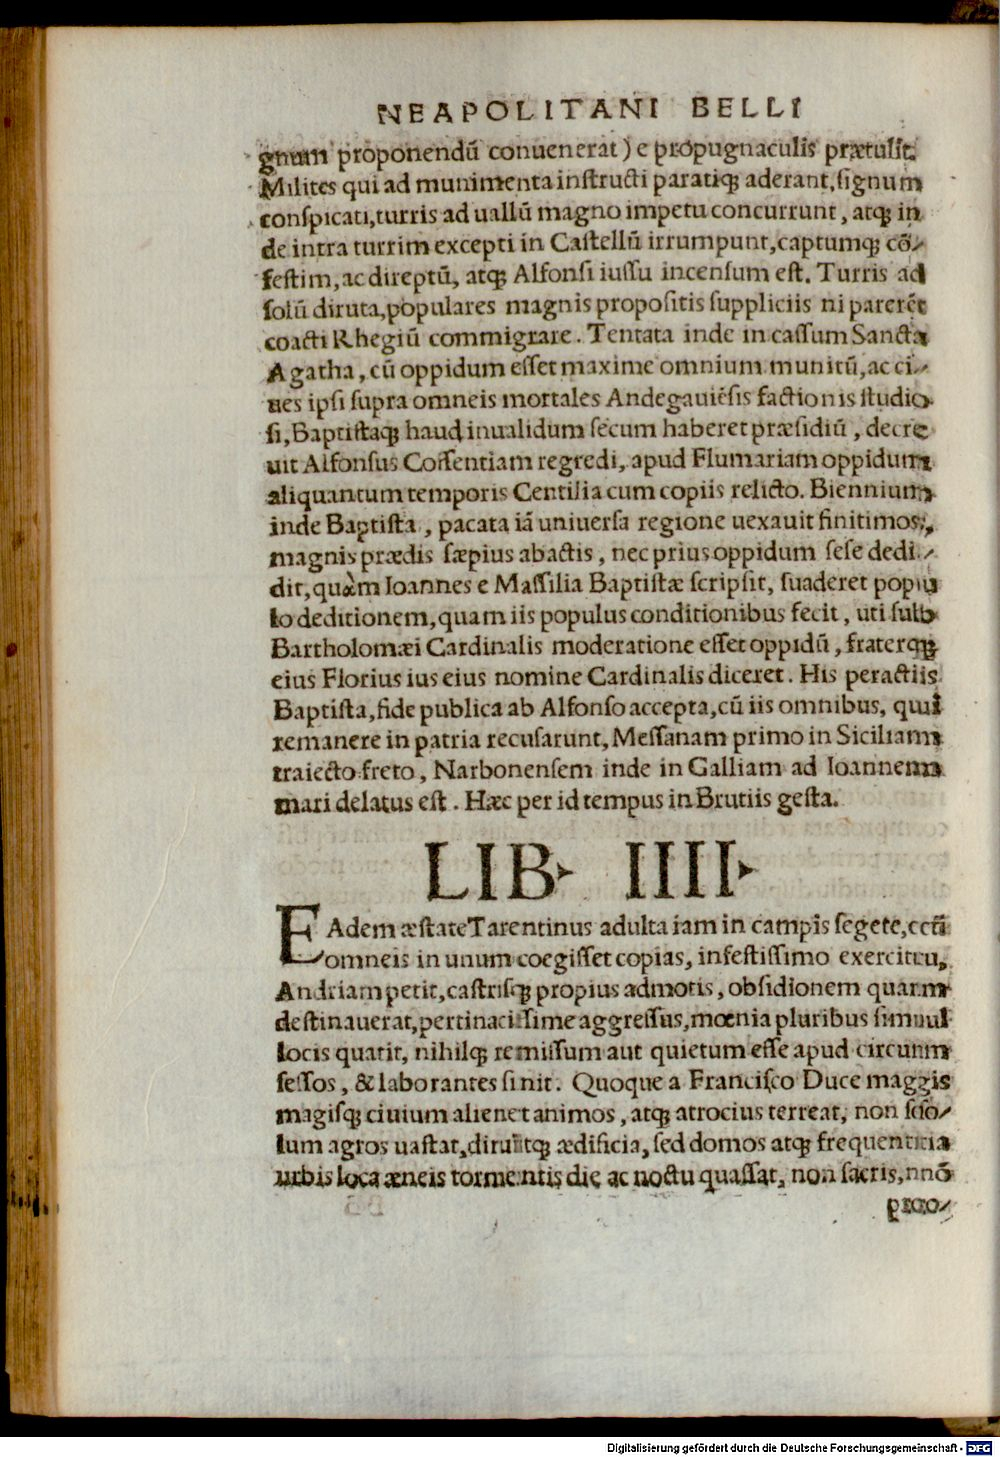 NEAPOLITANI BELLI
gnum proponendũ conuenerat) e propugnaculis prætulit.
Milites qui ad munimenta instructi paratiqꝫ aderant, signum
conspicati, turris ad uallũ magno impetu concurrunt, atqꝫ in
de intra turrim excepti in Castellũ irrumpunt, captumqꝫ cõ-
festim, ac direptũ, atqꝫ Alfonsi iussu incensum est. Turris ad
solũ diruta, populares magnis propositis suppliciis ni parerẽt
coacti Rhegiũ commigrare. Tentata inde in cassum Sancta
Agatha, cũ oppidum esset maxime omnium munitũ, ac ci-
ues ipsi supra omneis mortales Andegauiẽsis factionis studio
si, Baptistaqꝫ haud inualidum secum haberet præsidiũ, decre
uit Alfonsus Cossentiam regredi, apud Flumariam oppidum
aliquantum temporis Centilia cum copiis relicto. Biennium
inde Baptista, pacata iã uniuersa regione uexauit finitimos,
magnis prædis sæpius abactis, nec prius oppidum sese dedi-
dit, quàm Ioannes e Massilia Baptistæ scripsit, suaderet popu
lo deditionem, quam iis populus conditionibus fecit, uti sub
Bartholomæi Cardinalis moderatione esset oppidũ, fraterqꝫ
eius Florius ius eius nomine Cardinalis diceret. His peractis
Baptista, fide publica ab Alfonso accepta, cũ iis omnibus, qui
remanere in patria recusarunt, Messanam primo in Siciliam
traiecto freto, Narbonensem inde in Galliam ad Ioannem
mari delatus est. Hæc per id tempus in Brutiis gesta.
LIB. IIII.
EAdem æstate Tarentinus adulta iam in campis segete, cũ
omneis in unum coegisset copias, infestissimo exercitu,
Andriam petit, castrisqꝫ propius admotis, obsidionem quam
destinauerat, pertinacissime aggressus, mœnia pluribus simul
locis quatit, nihilqꝫ remissum aut quietum esse apud circum
sessos, & laborantes sinit. Quoque a Francisco Duce maggis
magisqꝫ ciuium alienet animos, atqꝫ atrocius terreat, non so-
lum agros uastat, diruitqꝫ ædificia, sed domos atqꝫ frequentia
urbis loca æneis tormentis die ac noctu quassat, non sacris, nõ
pro-
Digitalisierung gefördert durch die Deutsche Forschungsgemeinschaft - DFG